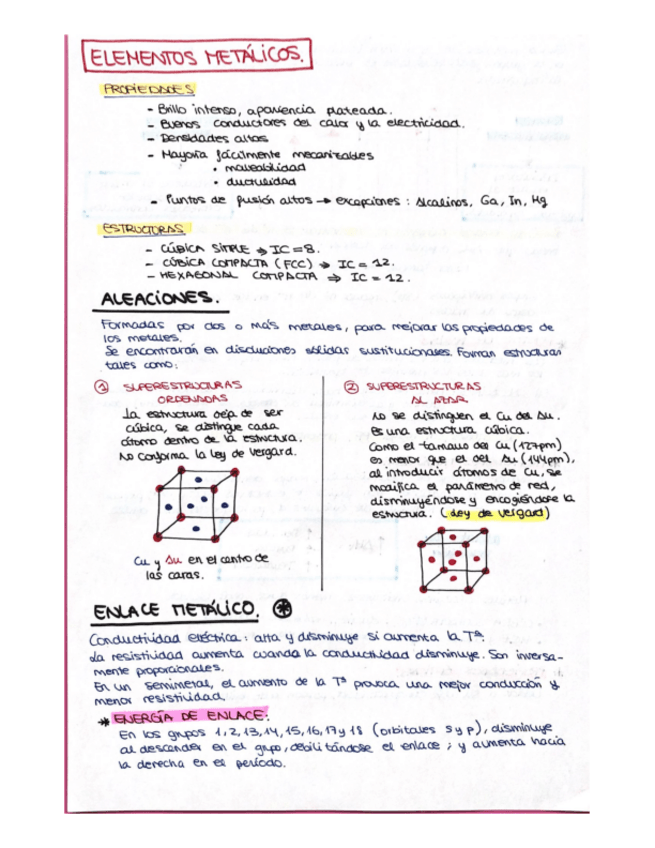 ELEMENTOS METÁLICOS.
PROPIEDADES
- Brillo intenso, apariencia plateada.
- Buenos conductores del calor y la electricidad.
- Densidades altas
- Mayoría fácilmente mecanizables
• maleabilidad
• ductilidad
- Puntos de fusión altos → excepciones : Alcalinos, Ga, In, Hg
ESTRUCTURAS
- CÚBICA SIMPLE → IC = 8.
- CÚBICA COMPACTA (FCC) → IC = 12.
- HEXAGONAL COMPACTA ⇒ IC = 12.
ALEACIONES.
Formadas por dos o más metales, para mejorar las propiedades de
los metales.
Se encontrarán en disoluciones sólidas sustitucionales. Forman estructuras
tales como:
① SUPERESTRUCTURAS
ORDENADAS
La estructura deja de ser
cúbica, se distingue cada
átomo dentro de la estructura.
No conforma la ley de Vergard.
Cu y Au en el centro de
las caras.
② SUPERESTRUCTURAS
AL AZAR
No se distinguen el Cu del Au.
Es una estructura cúbica.
Como el tamaño del Cu (127pm)
es menor que el del Au (144pm),
al introducir átomos de Cu, se
modifica el parámetro de red,
disminuyéndose y encogiéndose la
estructura. (Ley de Vergard)
ENLACE METÁLICO. ✱
Conductividad eléctrica: alta y disminuye si aumenta la Tª.
La resistividad aumenta cuando la conductividad disminuye. Son inversa-
mente proporcionales.
En un semimetal, el aumento de la Tª provoca una mejor conducción y
menor resistividad.
* ENERGÍA DE ENLACE:
En los grupos 1, 2, 13, 14, 15, 16, 17 y 18 (orbitales s y p), disminuye
al descender en el grupo, debilitándose el enlace ; y aumenta hacia
la derecha en el período.